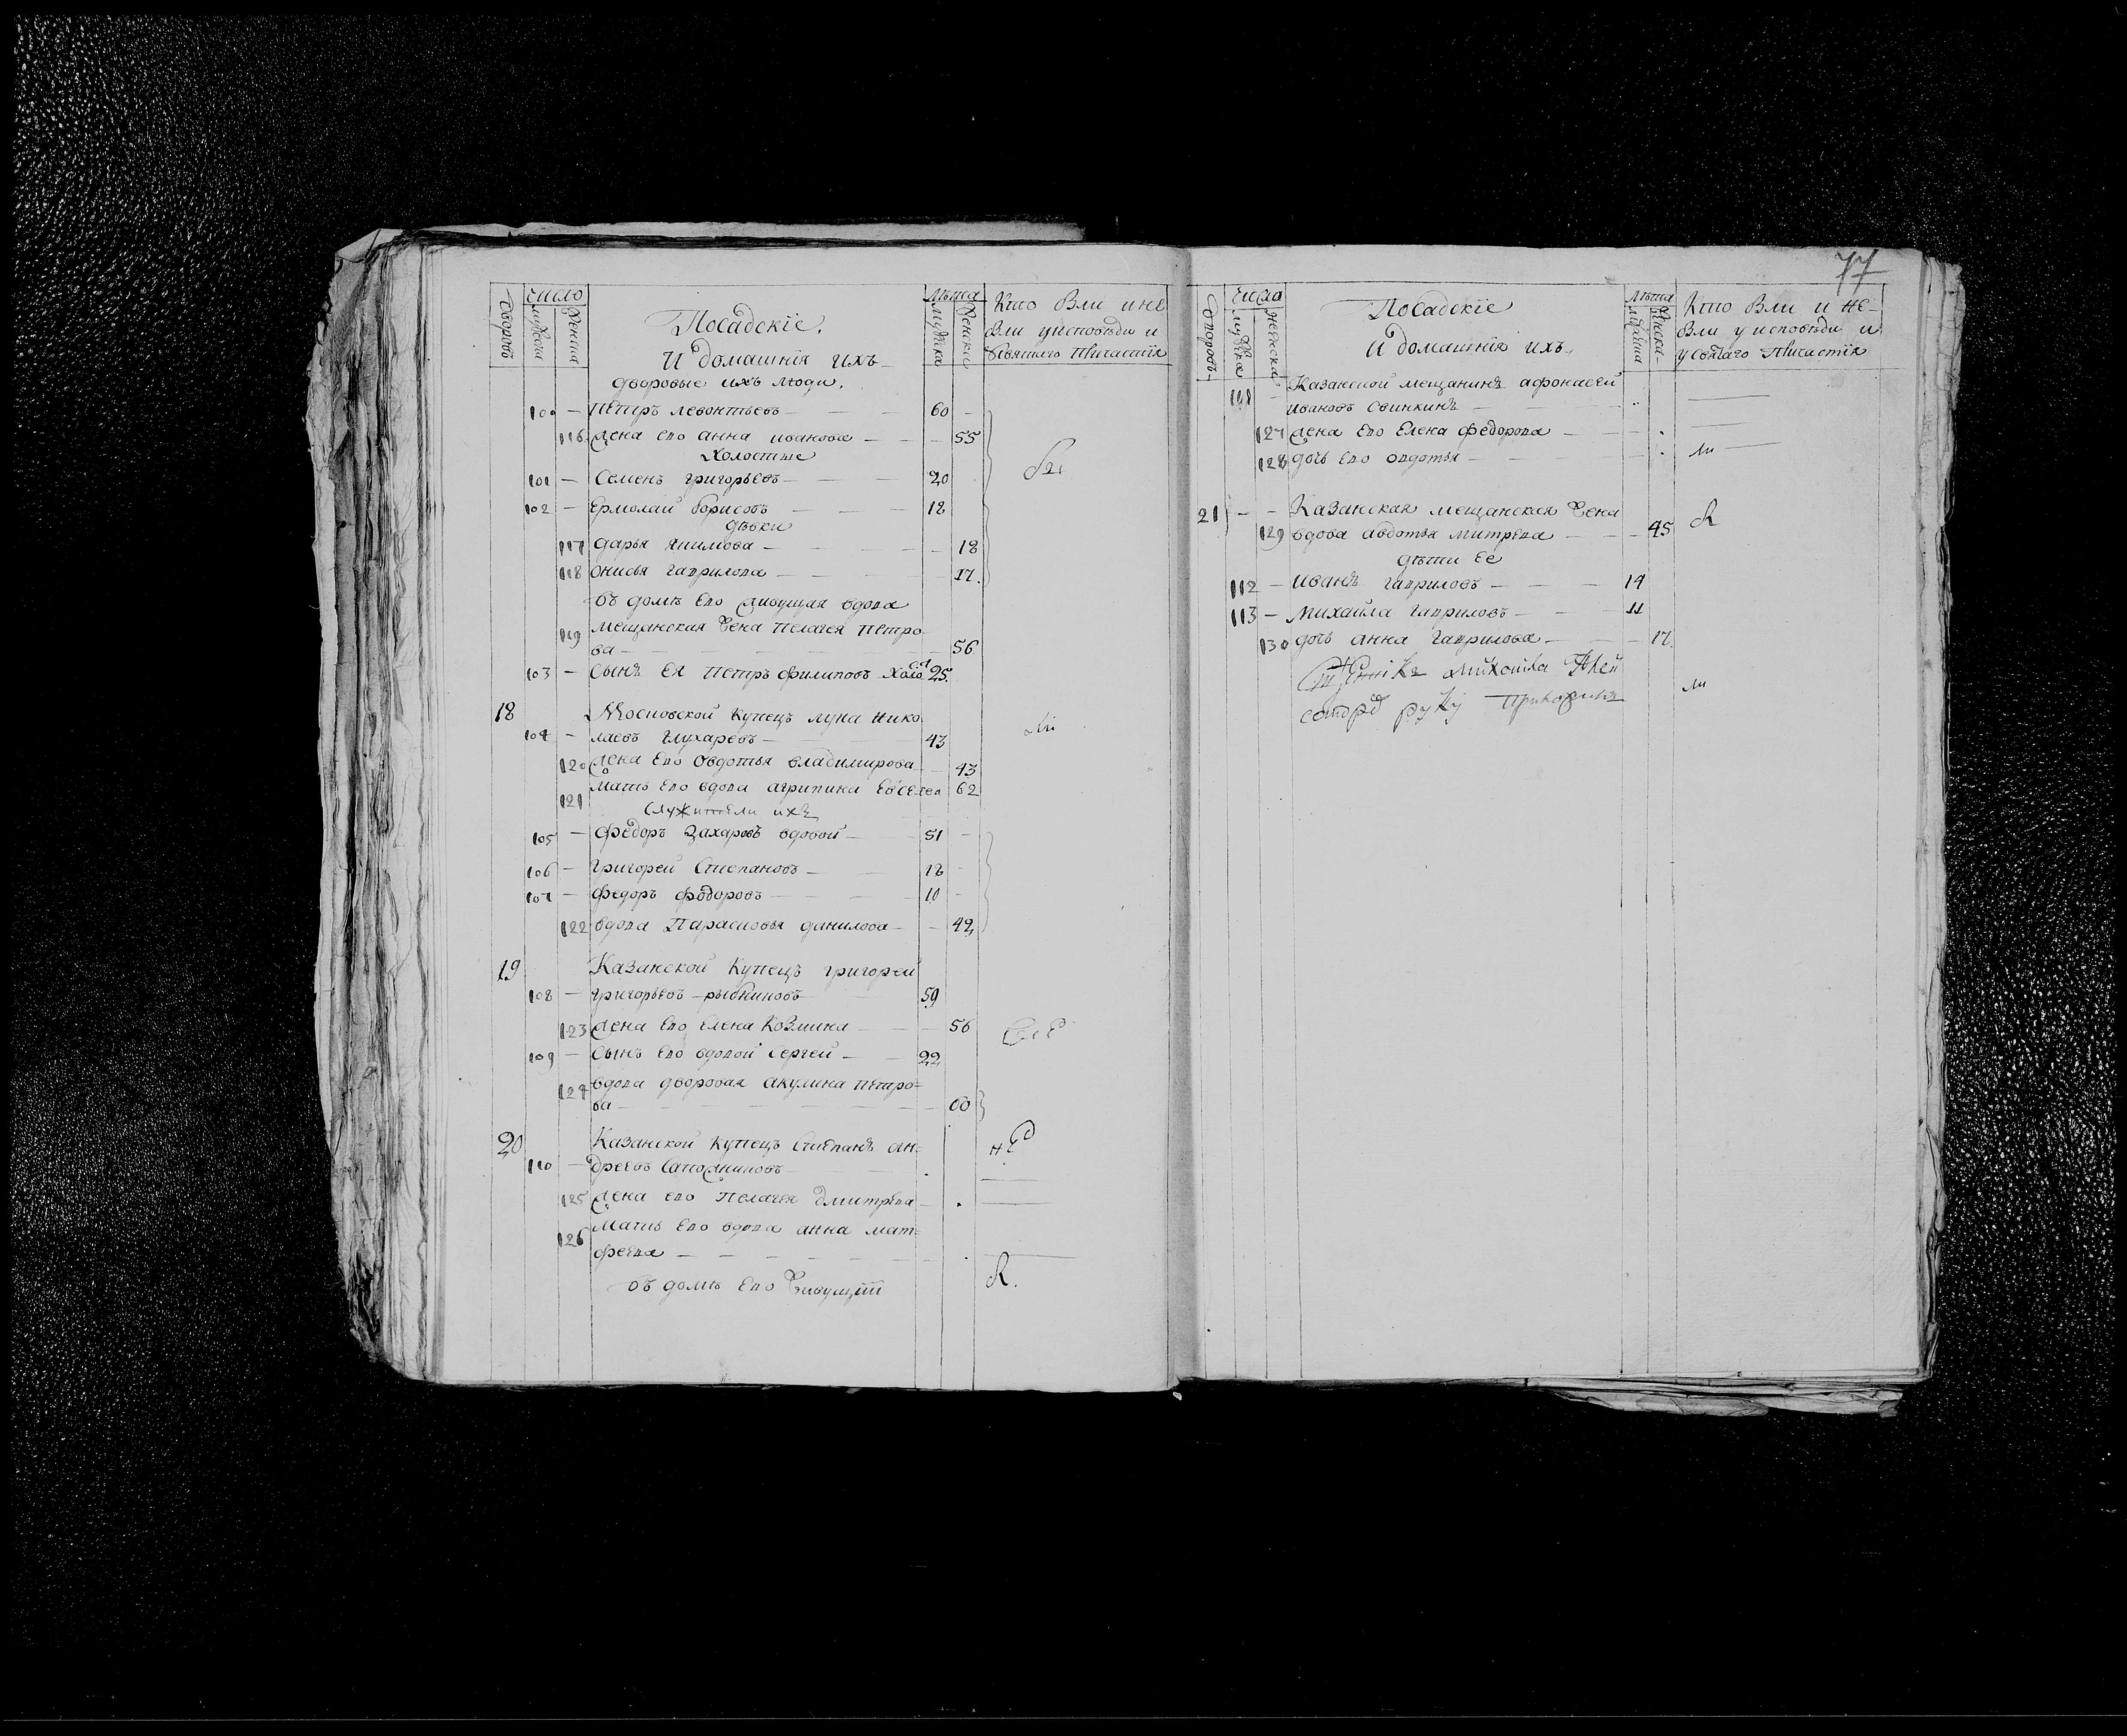 77
Дворовъ
число
мужска
женска
Посадскїе.
И домашнїя ихъ
лѣта
мужска
женска
Кто были и не
были у исповѣди и
святаго причастїя
дворовые ихъ люди.
100 — Петръ левонтьевъ — 60 —
116 жена его анна иванова — — 55
холостые
101 — Семенъ григорьевъ — 20
102 — Ермолай борисовъ — 18
дѣвки
117 дарья якимова — — 18
118 онисья гаврилова — 17.
въ домѣ его живущая вдова
119 мещанская жена пелагея петро
ва — 56
103 — сынъ ея петръ филиповъ холо 25.
18 Московской купецъ лука нико
104 — лаевъ глухаревъ — 43
120 жена его овдотья владимирова — 43
121 мать его вдова агрипина 62
служители ихъ
105 — федоръ захаровъ вдовой — 51 —
106 — григорей степановъ — 18 —
107 — федоръ федоровъ — 10 —
122 вдова парасковья данилова — — 42
19 Казанской купецъ григорей
108 — григорьевъ рыбниковъ 59
123 жена его елена козмина — 56
109 — сынъ его вдовой сергей — 22
124 вдова дворовая акулина петро=
ва — 60
20 Казанской купецъ степанъ ан=
110 — дреевъ сапожниковъ
125 жена его пелагея дмитрева —
126 мать его вдова анна мат=
феева —
въ домѣ его живущїи
Дворовъ
число
мужска
женска
Посадскїе
и домашнїя ихъ
лѣта
мужска
женска
Кто были и не=
были у исповѣди и
у святаго причастїя
Казанской мещанинъ афонасей
111 — ивановъ свинкинъ —
127 жена его елена федорова —
128 дочь его овдотья —
21 — — Казанская мещанская жена
129 вдова авдотья митрева — — 45
дѣти ее
112 — иванъ гавриловъ — 14
113 — михайла гавриловъ — 11
130 дочь анна гаврилова — — 17.
руку приложилъ